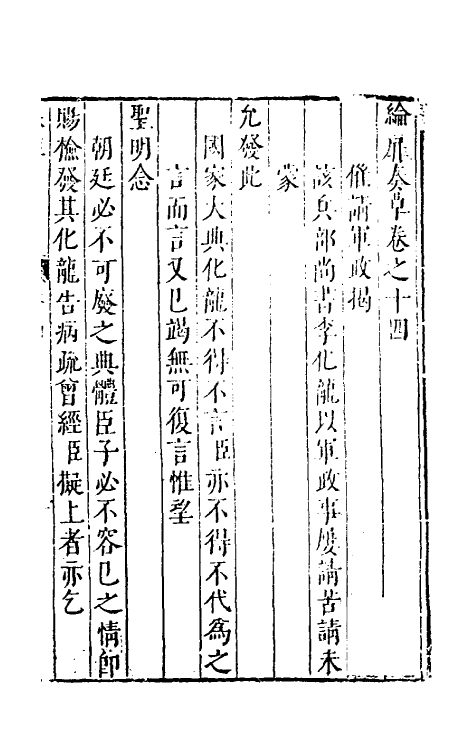 綸扉奏草卷之十四
催請軍政揭
該兵部尚書李化龍以軍政事屢請苦請未
蒙
允發此
國家大典化龍不得不言臣亦不得不代爲之
言而言又已竭無可復言惟望
聖明念
朝廷必不可廢之典體臣子必不容已之情卽
賜檢發其化龍告病疏曾經臣擬上者亦乞